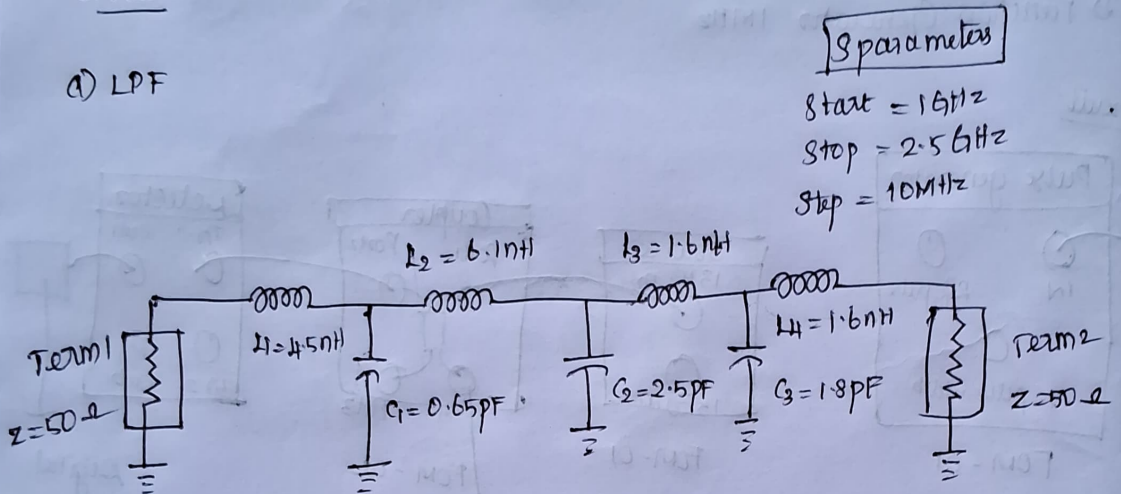 a) LPF
S parameters
Start = 1GHz
Stop = 2.5GHz
Step = 10MHz
L2 = 6.1nH
L3 = 1.6nH
L1=4.5nH
L4=1.6nH
Term1
Z=50Ω
C1=0.65pF
C2=2.5pF
C3=1.8pF
Term2
Z=50Ω